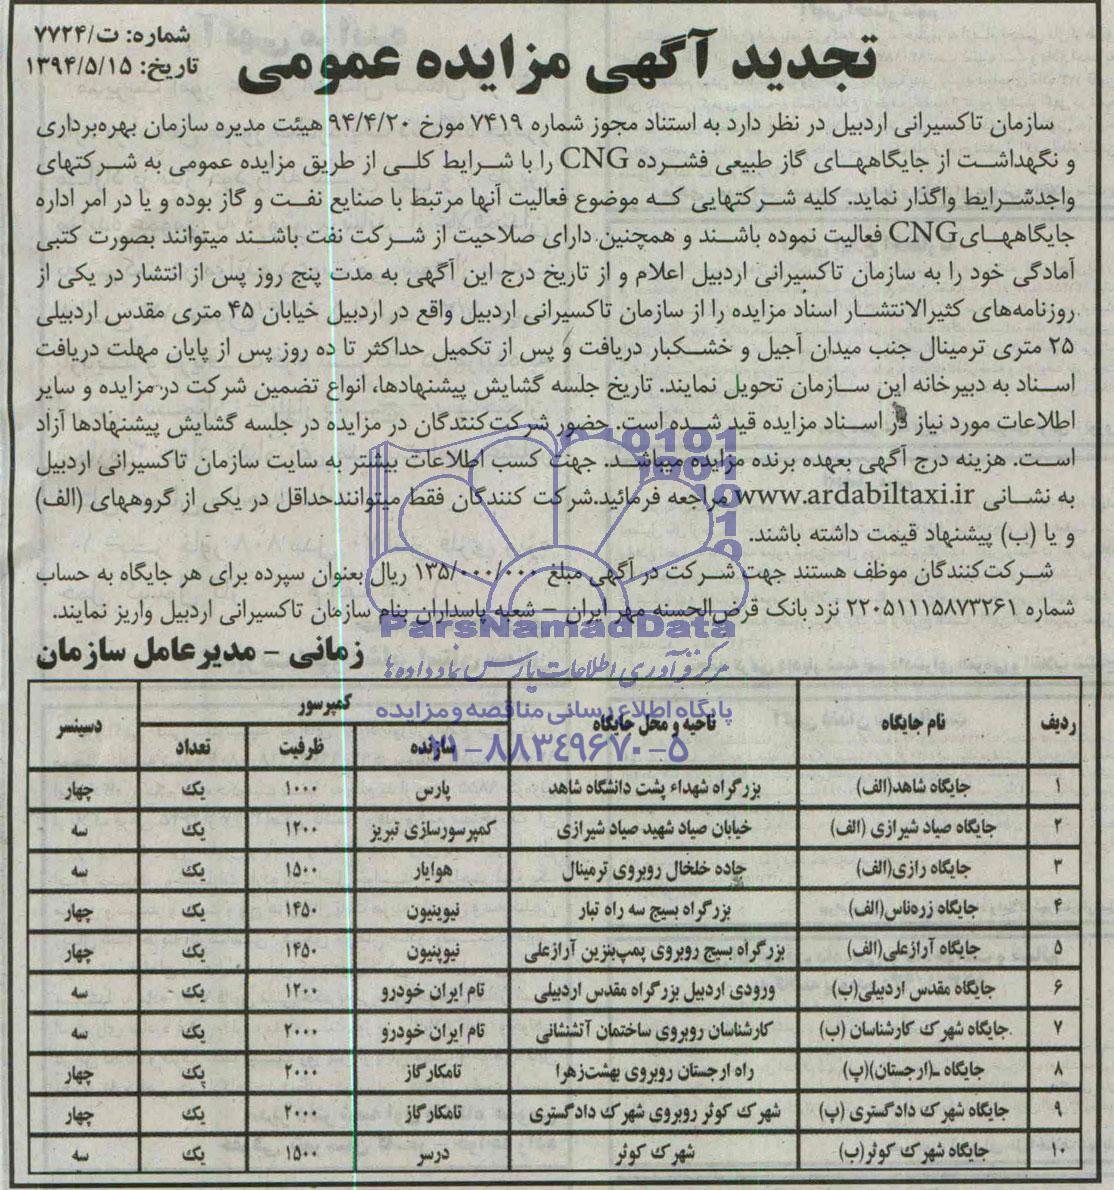 شماره: ت/۷۷۲۴
تاریخ: ۱۳۹۴/۵/۱۵
تجدید آگهی مزایده عمومی
سازمان تاکسیرانی اردبیل در نظر دارد به استناد مجوز شماره ۷۴۱۹ مورخ ۹۴/۴/۲۰ هیئت مدیره سازمان بهره‌برداری
و نگهداشت از جایگاههای گاز طبیعی فشرده CNG را با شرایط کلی از طریق مزایده عمومی به شرکتهای
واجدشرایط واگذار نماید. کلیه شرکتهایی که موضوع فعالیت آنها مرتبط با صنایع نفت و گاز بوده و یا در امر اداره
جایگاههای CNG فعالیت نموده باشند و همچنین دارای صلاحیت از شرکت نفت باشند میتوانند بصورت کتبی
آمادگی خود را به سازمان تاکسیرانی اردبیل اعلام و از تاریخ درج این آگهی به مدت پنج روز پس از انتشار در یکی از
روزنامه‌های کثیرالانتشار اسناد مزایده را از سازمان تاکسیرانی اردبیل واقع در اردبیل خیابان ۴۵ متری مقدس اردبیلی
۲۵ متری ترمینال جنب میدان آجیل و خشکبار دریافت و پس از تکمیل حداکثر تا ده روز پس از پایان مهلت دریافت
اسناد به دبیرخانه این سازمان تحویل نمایند. تاریخ جلسه گشایش پیشنهادها، انواع تضمین شرکت در مزایده و سایر
اطلاعات مورد نیاز در اسناد مزایده قید شده است. حضور شرکت‌کنندگان در مزایده در جلسه گشایش پیشنهادها آزاد
است. هزینه درج آگهی بعهده برنده مزایده میباشد. جهت کسب اطلاعات بیشتر به سایت سازمان تاکسیرانی اردبیل
به نشانی www.ardabiltaxi.ir مراجعه فرمائید.شرکت کنندگان فقط میتوانندحداقل در یکی از گروههای (الف)
و یا (ب) پیشنهاد قیمت داشته باشند.
شرکت‌کنندگان موظف هستند جهت شرکت در آگهی مبلغ ۱۳۵/۰۰۰/۰۰۰ ریال بعنوان سپرده برای هر جایگاه به حساب
شماره ۲۲۰۵۱۱۱۵۸۷۳۲۶۱ نزد بانک قرض‌الحسنه مهر ایران – شعبه پاسداران بنام سازمان تاکسیرانی اردبیل واریز نمایند.
زمانی – مدیرعامل سازمان
ParsNamadData
مرکز فرآوری اطلاعات پارس نماد داده‌ها
پایگاه اطلاع رسانی مناقصه و مزایده
۰۲۱-۸۸۳۴۹۶۷۰-۵
ردیف نام جایگاه ناحیه و محل جایگاه کمپرسور دسپنسر
سازنده ظرفیت تعداد
۱ جایگاه شاهد(الف) بزرگراه شهداء پشت دانشگاه شاهد پارس ۱۰۰۰ یک چهار
۲ جایگاه صیاد شیرازی (الف) خیابان صیاد شهید صیاد شیرازی کمپرسورسازی تبریز ۱۲۰۰ یک سه
۳ جایگاه رازی(الف) جاده خلخال روبروی ترمینال هوایار ۱۵۰۰ یک سه
۴ جایگاه زره‌ناس(الف) بزرگراه بسیج سه راه تبار نیوپنیون ۱۴۵۰ یک چهار
۵ جایگاه آرازعلی(الف) بزرگراه بسیج روبروی پمپ‌بنزین آرازعلی نیوپنیون ۱۴۵۰ یک چهار
۶ جایگاه مقدس اردبیلی(ب) ورودی اردبیل بزرگراه مقدس اردبیلی تام ایران خودرو ۱۲۰۰ یک سه
۷ جایگاه شهرک کارشناسان (ب) کارشناسان روبروی ساختمان آتشنشانی تام ایران خودرو ۲۰۰۰ یک سه
۸ جایگاه (ارجستان)(پ) راه ارجستان روبروی بهشت‌زهرا تامکارگاز ۲۰۰۰ یک چهار
۹ جایگاه شهرک دادگستری (پ) شهرک کوثر روبروی شهرک دادگستری تامکارگاز ۲۰۰۰ یک چهار
۱۰ جایگاه شهرک کوثر(ب) شهرک کوثر درسر ۱۵۰۰ یک سه